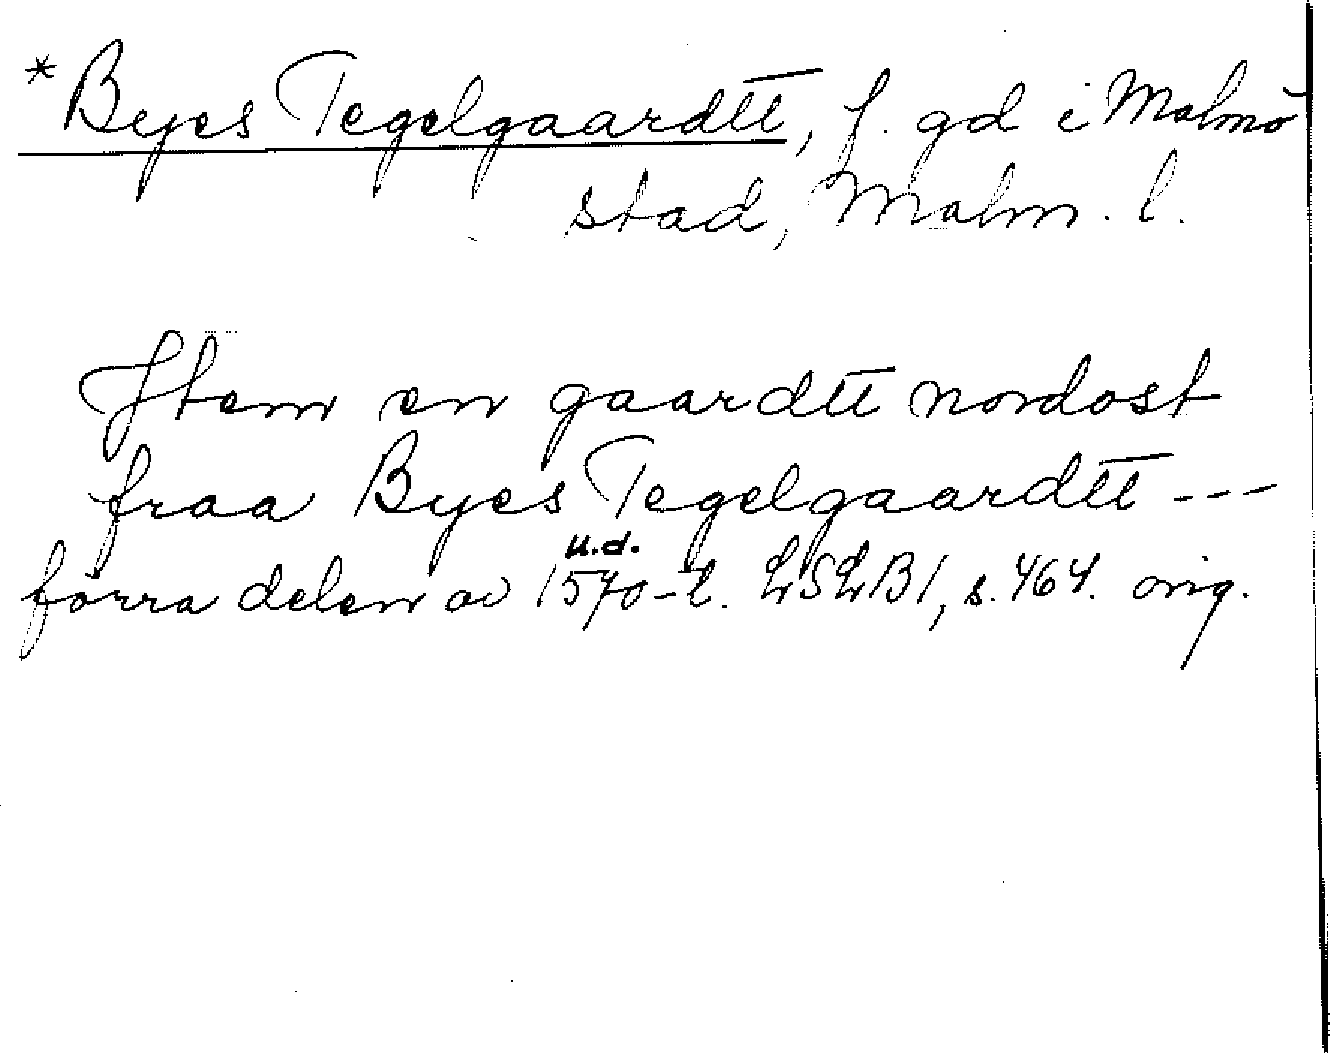 *Byes Tegelgaardtt, f. gd i Malmö
stad, Malm. l.
Jtem en gaardtt nordost
fraa Byes Tegelgaardtt ---
u.d.
förra delen av 1570-t. LSLB1, s. 464. orig.